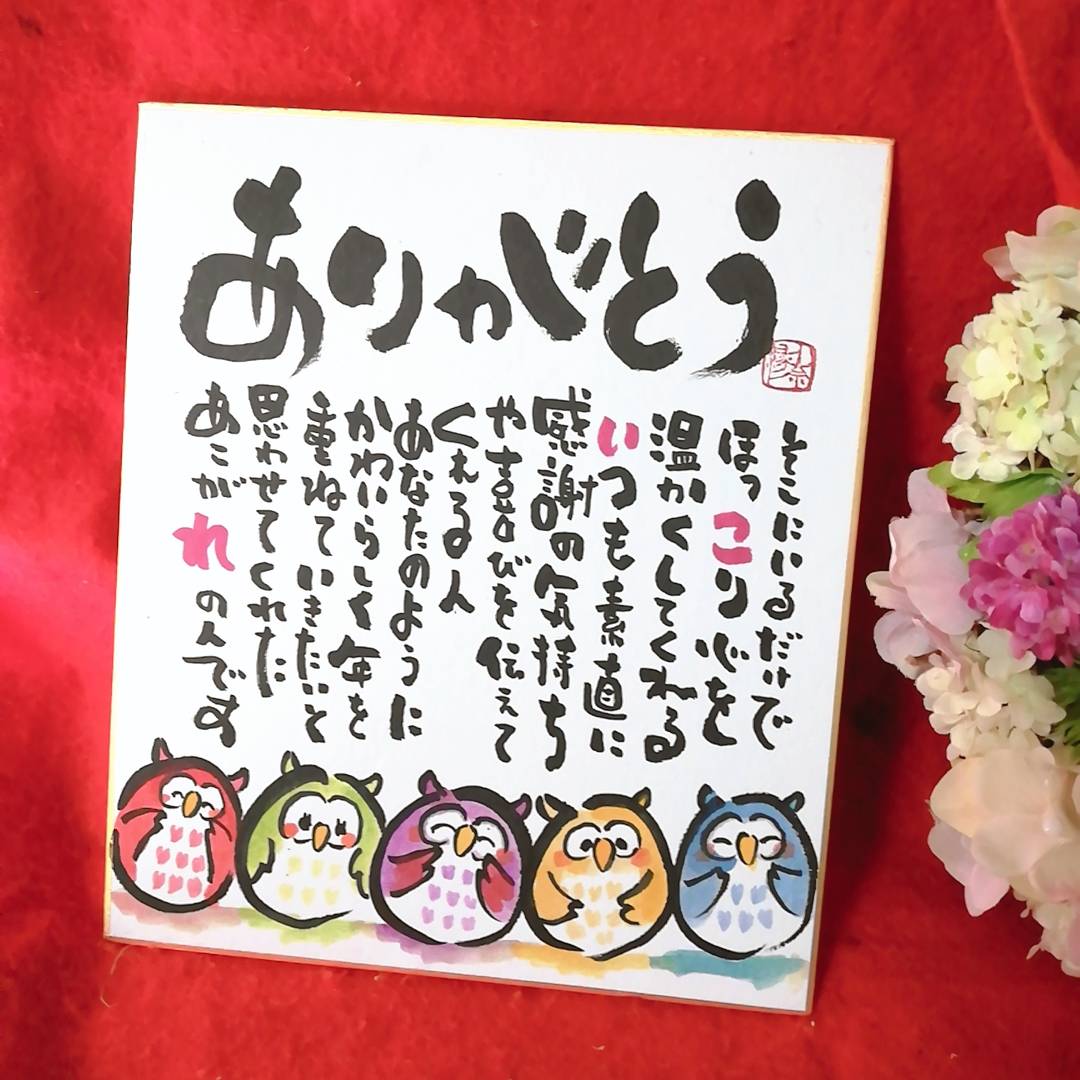 ありがとう
そこにいるだけで
ほっこり心を
温かくしてくれる
いつも素直に
感謝の気持ち
や喜びを伝えて
くれる人
あなたのように
かわいらしく年を
重ねていきたいと
思わせてくれた
あこがれの人です